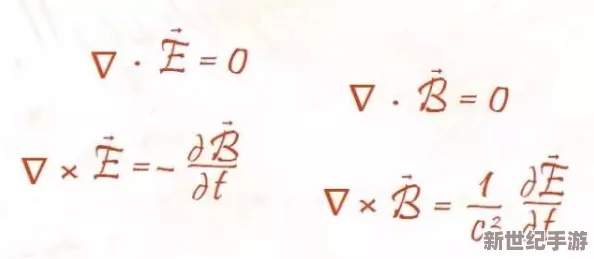 ∇ · E⃗ = 0
∇ · B⃗ = 0
∇ × E⃗ = - ∂B⃗/∂t
∇ × B⃗ = 1/c² ∂E⃗/∂t
新世纪手游